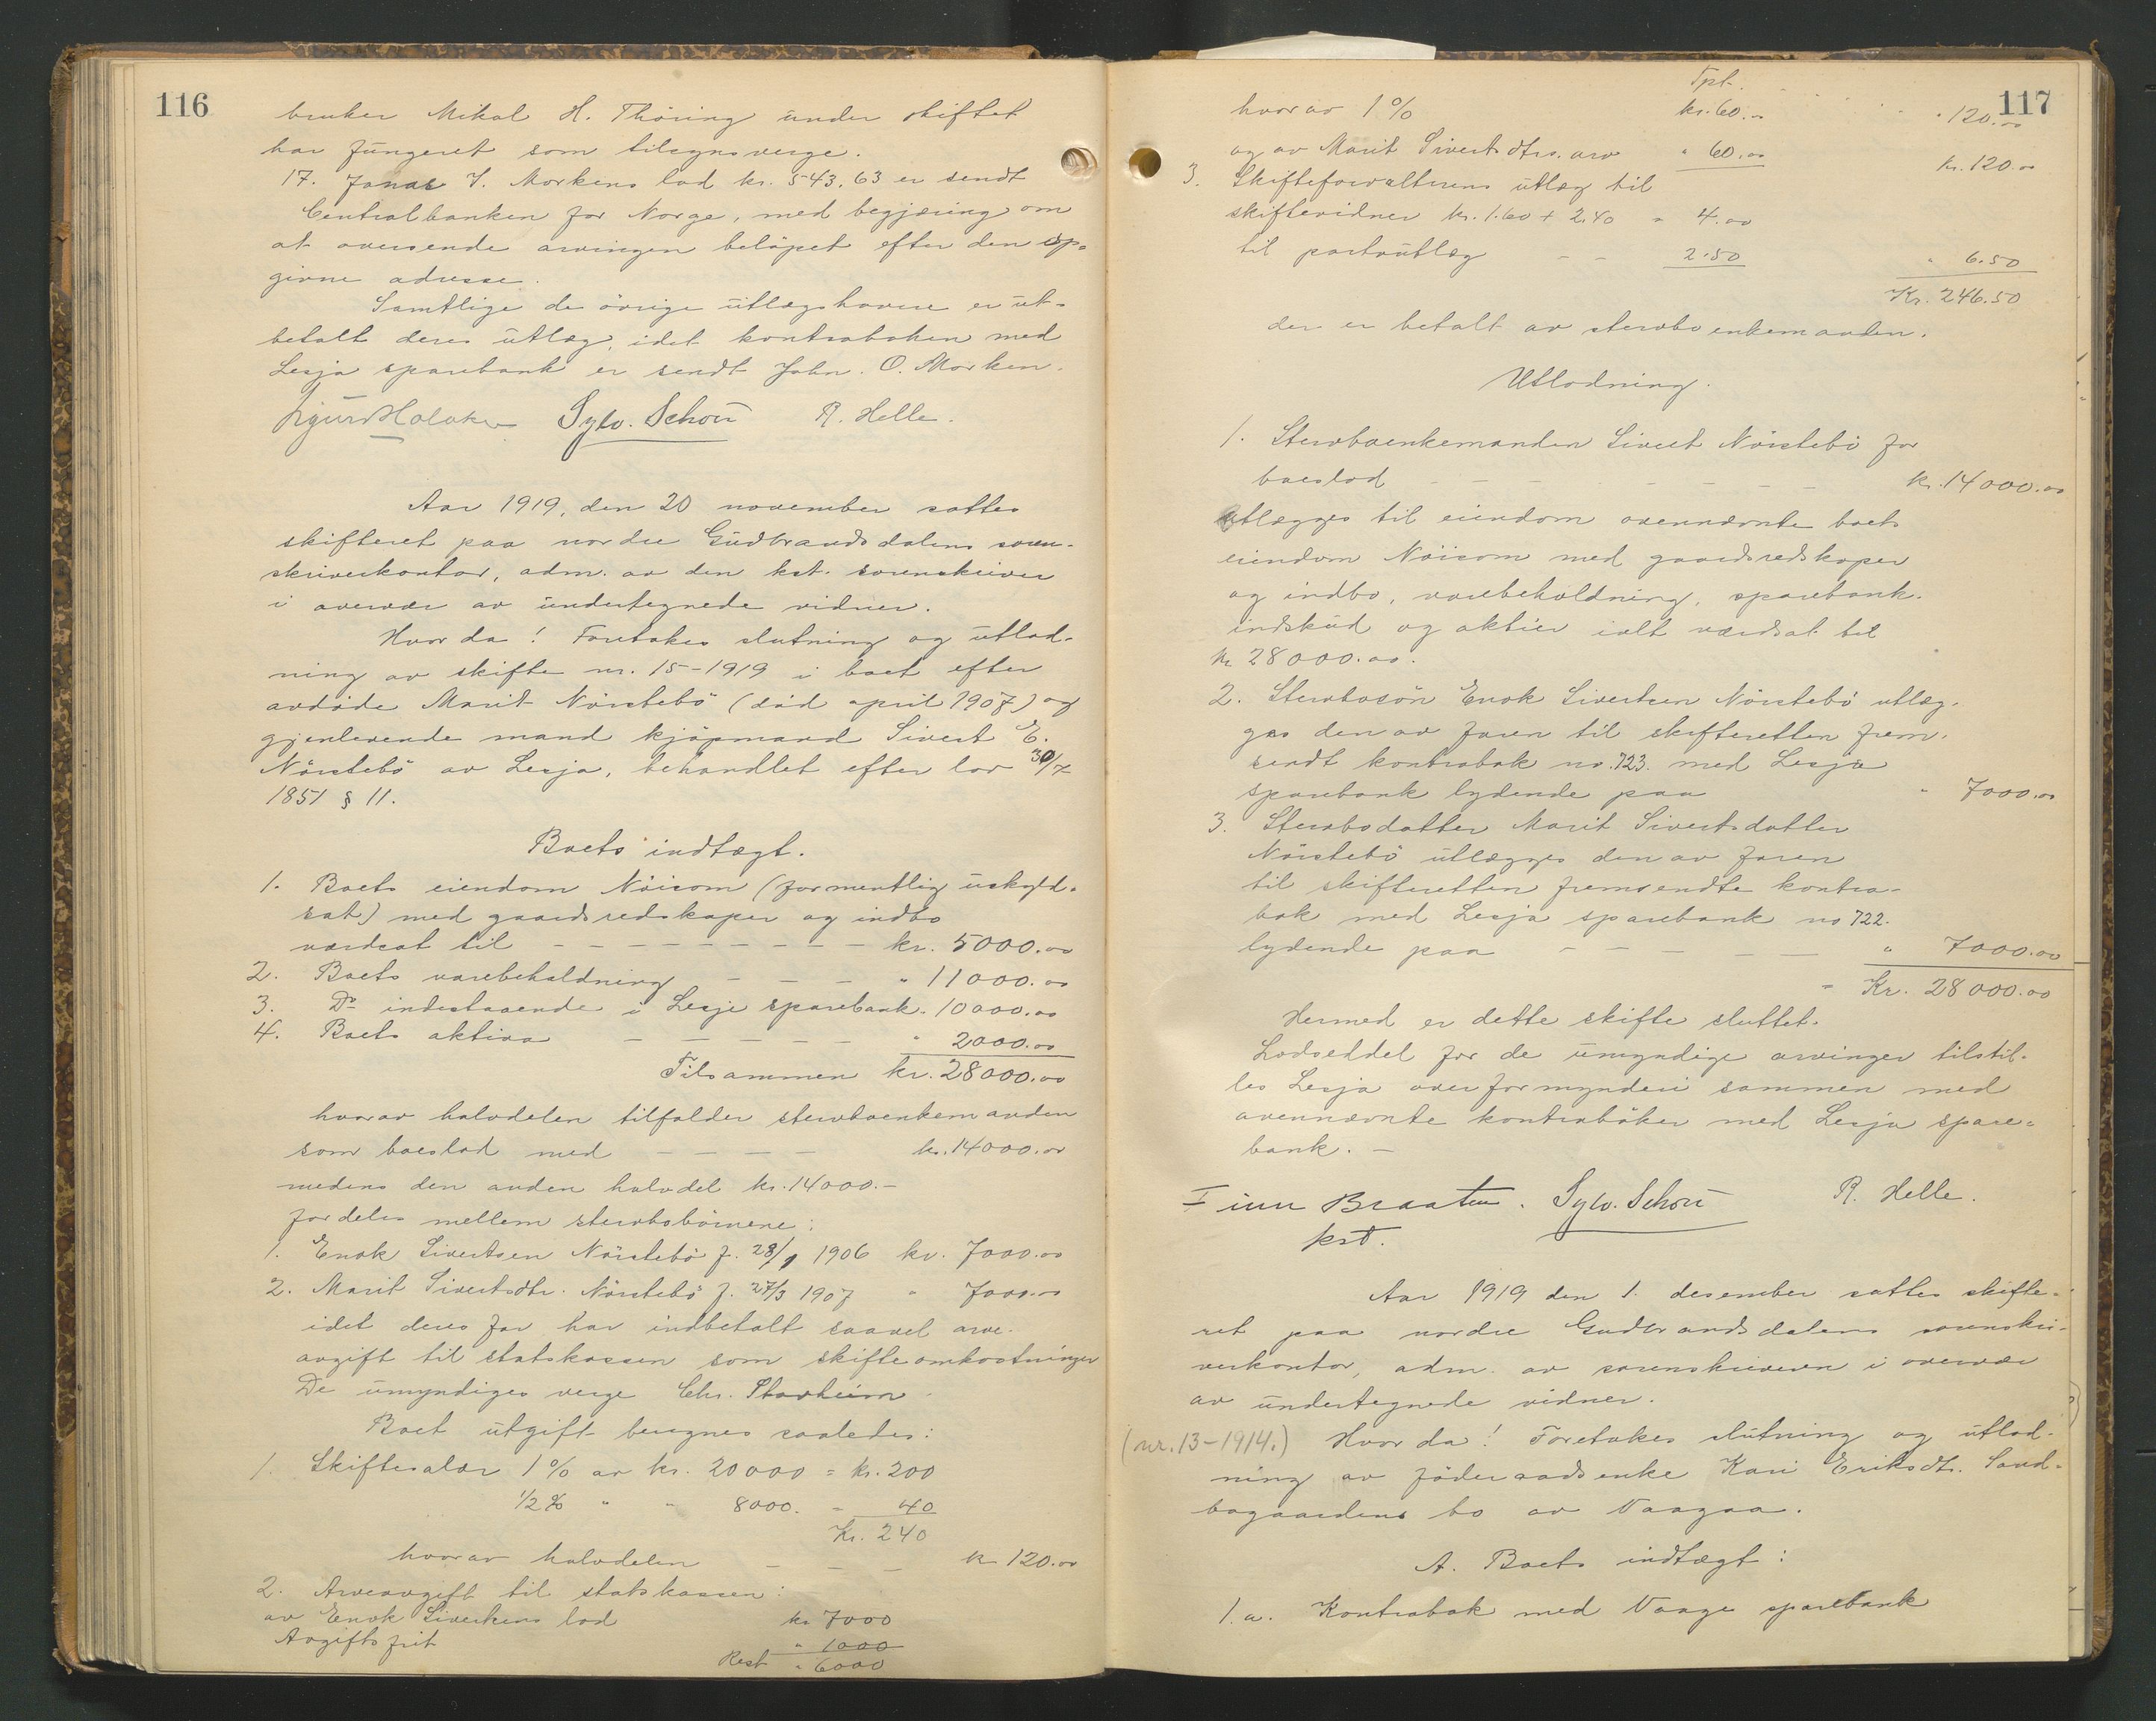 116
bruker Mikal H. Thöring under skiftet
har fungeret som tilsynsverge.
17. Jonas J. Morkens lod kr. 543.63 er sendt
Centralbanken for Norge, med begjæring om
at oversende arvingen beløpet efter den op-
givne adresse.
Samtlige de övrige utlægshavere er ut-
betalt deres utlæg, idet kontraboken med
Lesja sparebank er sendt John. O. Morken.
Sylv. Schou R. Helle.
Aar 1919, den 20 november sattes
skifteret paa nordre Gudbrandsdalens soren-
skriverkontor, adm. av den kst. sorenskriver
i overvær av undertegnede vidner.
Hvor da! Foretokes slutning og utlod-
ning av skifte nr. 15-1919 i boet efter
avdöde Marit Nörstebö (död april 1907) og
gjenlevende mand kjöpmand Sivert E.
Nörstebö av Lesja, behandlet efter lov 30/7
1851 § 11.
Boets indtægt.
1. Boets eiendom Nöisom (formentlig uskyld-
sat) med gaardsredskaper og indbo
værdsat til - - - - - - - - - kr. 5000.00
2. Boets varebeholdning - - - " 11000.00
3. Do indestaaende i Lesje sparebank " 10000.00
4. Boets aktiva - - - - - " 2000.00
Tilsammen kr. 28000.00
hvorav halvdelen tilfalder stervboenkemanden
som boeslod med - - - - kr. 14000.00
medens den anden halvdel kr. 14000.-
fordeles mellem stervbobörnene:
1. Enok Sivertsen Nörstebö f. 28/1 1906 kr. 7000.00
2. Marit Sivertsdtr. Nörstebö f. 27/3 1907 " 7000.00
idet deres far har indbetalt saavel arve-
avgift til statskassen som skifteomkostninger
De umyndiges verge Chr. Storheim.
Boet utgift beregnes saaledes:
1. Skiftesalær 1% av kr. 20000 = kr. 200
1/2% " " 8000. = 40
Kr. 240
hvorav halvdelen - - - kr 120.00
2. Arveavgift til statskassen:
av Enok Sivertsens lod kr 7000
Avgiftsfrit " 1000
Rest " 6000
117
Tpt.
hvorav 1% kr. 60.00 " 120.00
og av Marit Sivertsdtrs. arv " 60.00 kr. 120.00
3. Skifteforvalterens utlæg til
skiftevidner kr. 1.60 + 2.40 = 4.00
til portoutlæg - - 2.50 " 6.50
Kr. 246.50
der er betalt av stervboenkemanden.
Utlodning.
1. Stervboenkemanden Sivert Nörstebö for
boeslod - - - - - - - - kr. 14000.00
utlægges til eiendom ovennævnte boets
eiendom Nöisom med gaardsredskaper
og indbo, varebeholdning, sparebank-
indskud og aktier ialt værdsat til
kr 28000.00.
2. Stervbosön Enok Sivertsen Nörstebö utlæg-
ges den av faren til skifteretten frem-
sendt kontrabok no. 723. med Lesja
sparebank lydende paa " 7000.00
3. Stervbodatter Marit Sivertsdatter
Nörstebö utlægges den av faren
til skifteretten fremsendte kontra-
bok med Lesja sparebank no 722.
lydende paa - - - - - " 7000.00
= Kr. 28000.00
Hermed er dette skifte sluttet.
Lodseddel for de umyndige arvinger tilstil-
les Lesja overformynderi sammen med
ovennævnte kontraböker med Lesja spare-
bank. -
Finn Braaten. Sylv. Schou R. Helle.
kst.
Aar 1919 den 1. desember sattes skifte-
ret paa nordre Gudbrandsdalens sorenskri-
verkontor, adm. av sorenskriveren i overvær
av undertegnede vidner.
(nr. 13-1914.) Hvor da! Foretokes slutning og utlod-
ning av föderaadsenke Kari Eriksdtr. Sand-
bogaardens bo av Vaagaa.
A. Boets indtægt:
1.a. Kontrabok med Vaage sparebank